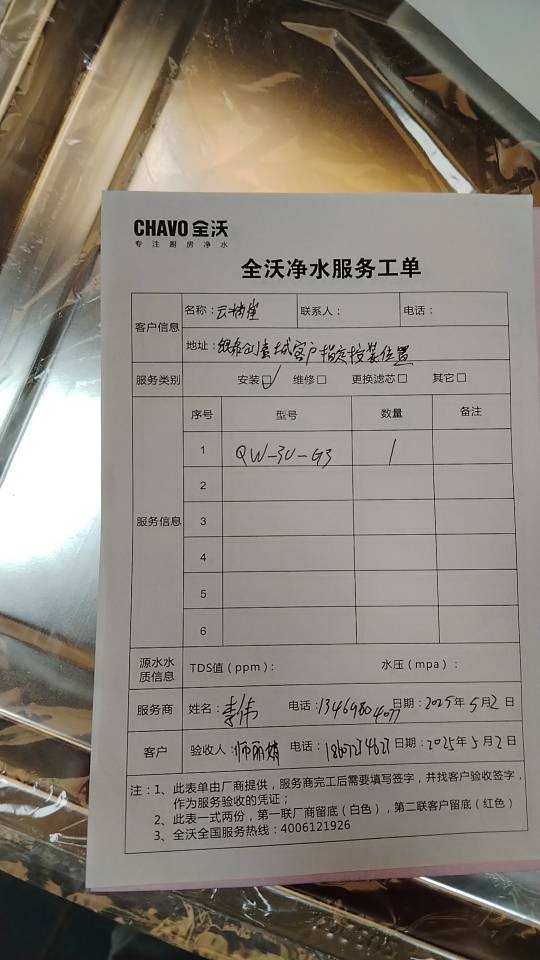 CHAVO 全沃
专注厨房净水
全沃净水服务工单
客户信息
名称： 联系人： 电话：
地址： 客户指定安装位置
服务类别 安装☑ 维修□ 更换滤芯□ 其它□
服务信息
序号 型号 数量 备注
1 QW-3U-G3 1
2
3
4
5
6
源水水质信息 TDS值（ppm）： 水压（mpa）：
服务商 姓名：李伟 电话：13469804077 日期：2025年5月2日
客户 验收人： 电话： 日期：2025年5月2日
注：1、此表单由厂商提供，服务商完工后需要填写签字，并找客户验收签字，
作为服务验收的凭证；
2、此表一式两份，第一联厂商留底（白色），第二联客户留底（红色）
3、全沃全国服务热线：4006121926